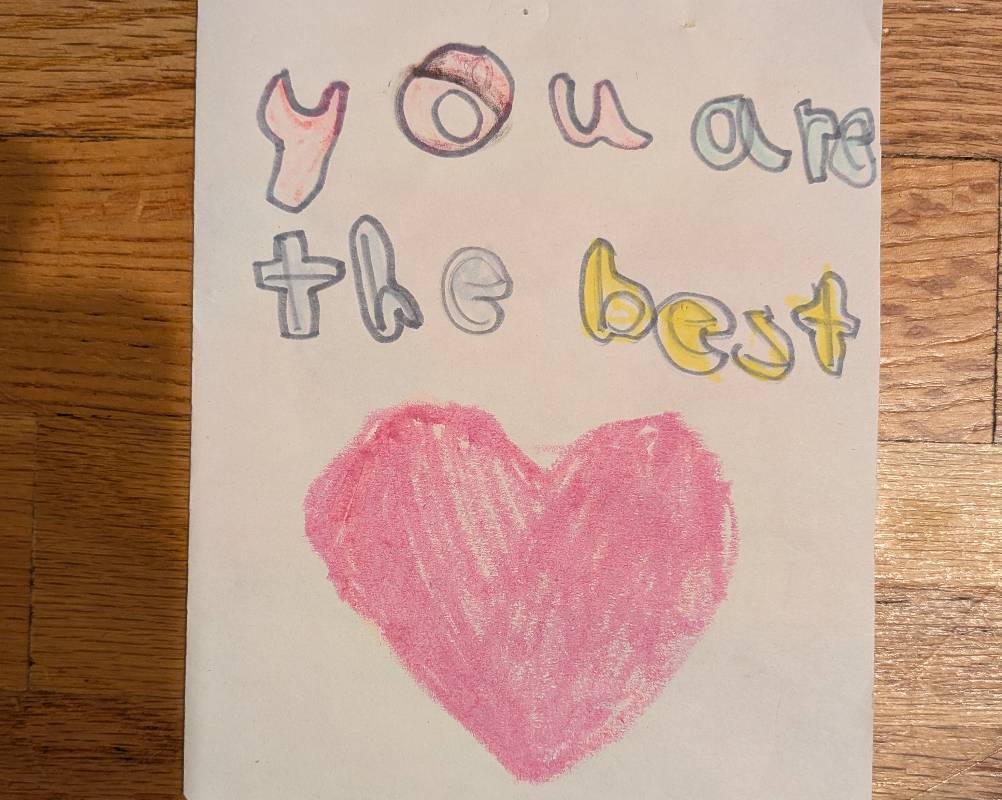 you are
the best